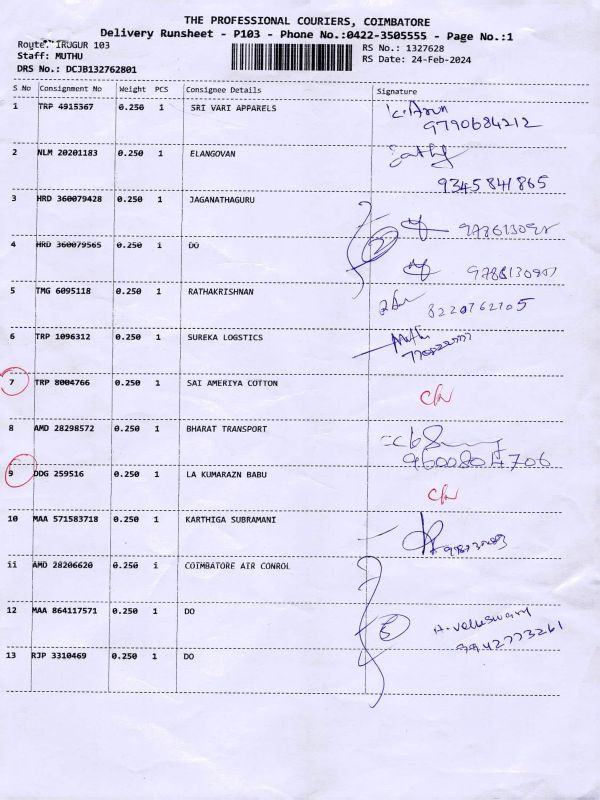 THE PROFESSIONAL COURIERS, COIMBATORE
Delivery Runsheet - P103 - Phone No.:0422-3505555 - Page No.:1
Route. IRUGUR 103
RS No.: 1327628
Staff: MUTHU
RS Date: 24-Feb-2024
DRS No.: DCJB132762801
S No Consignment No Weight PCS Consignee Details Signature
1 TRP 4915367 0.250 1 SRI VARI APPARELS K. Arun
9790684212
2 NLM 20201183 0.250 1 ELANGOVAN
9345841865
3 HRD 360079428 0.250 1 JAGANATHAGURU
4 HRD 360079565 0.250 1 DO
5 TMG 6095118 0.250 1 RATHAKRISHNAN
8220762705
6 TRP 1096312 0.250 1 SUREKA LOGSTICS
7 TRP 8004766 0.250 1 SAI AMERIYA COTTON
8 AMD 28298572 0.250 1 BHARAT TRANSPORT
9 DDG 259516 0.250 1 LA KUMARAZN BABU
10 MAA 571583718 0.250 1 KARTHIGA SUBRAMANI
11 AMD 28206620 0.250 1 COIMBATORE AIR CONROL
12 MAA 864117571 0.250 1 DO
9942773261
13 RJP 3310469 0.250 1 DO